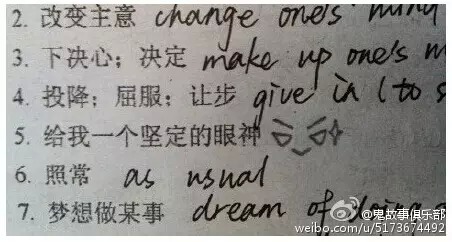 2. 改变主意 change one's mind
3. 下决心；决定 make up one's m
4. 投降；屈服；让步 give in (to s
5. 给我一个坚定的眼神
6. 照常 as usual
7. 梦想做某事 dream of doing
@鬼故事俱乐部
weibo.com/u/5173674492